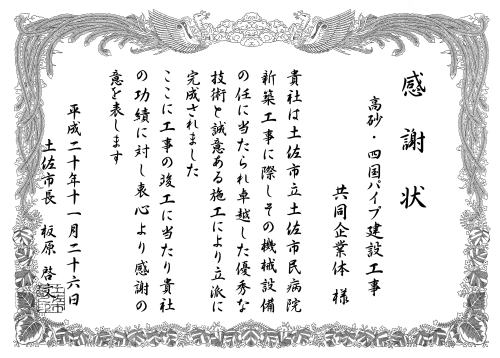 感謝状
高砂・四国パイプ建設工事
共同企業体 様
貴社は土佐市立土佐市民病院
新築工事に際しその機械設備
の任に当たられ卓越した優秀な
技術と誠意ある施工により立派に
完成されました
ここに工事の竣工に当たり貴社
の功績に対し衷心より感謝の
意を表します
平成二十年十一月二十六日
土佐市長 板原 啓文